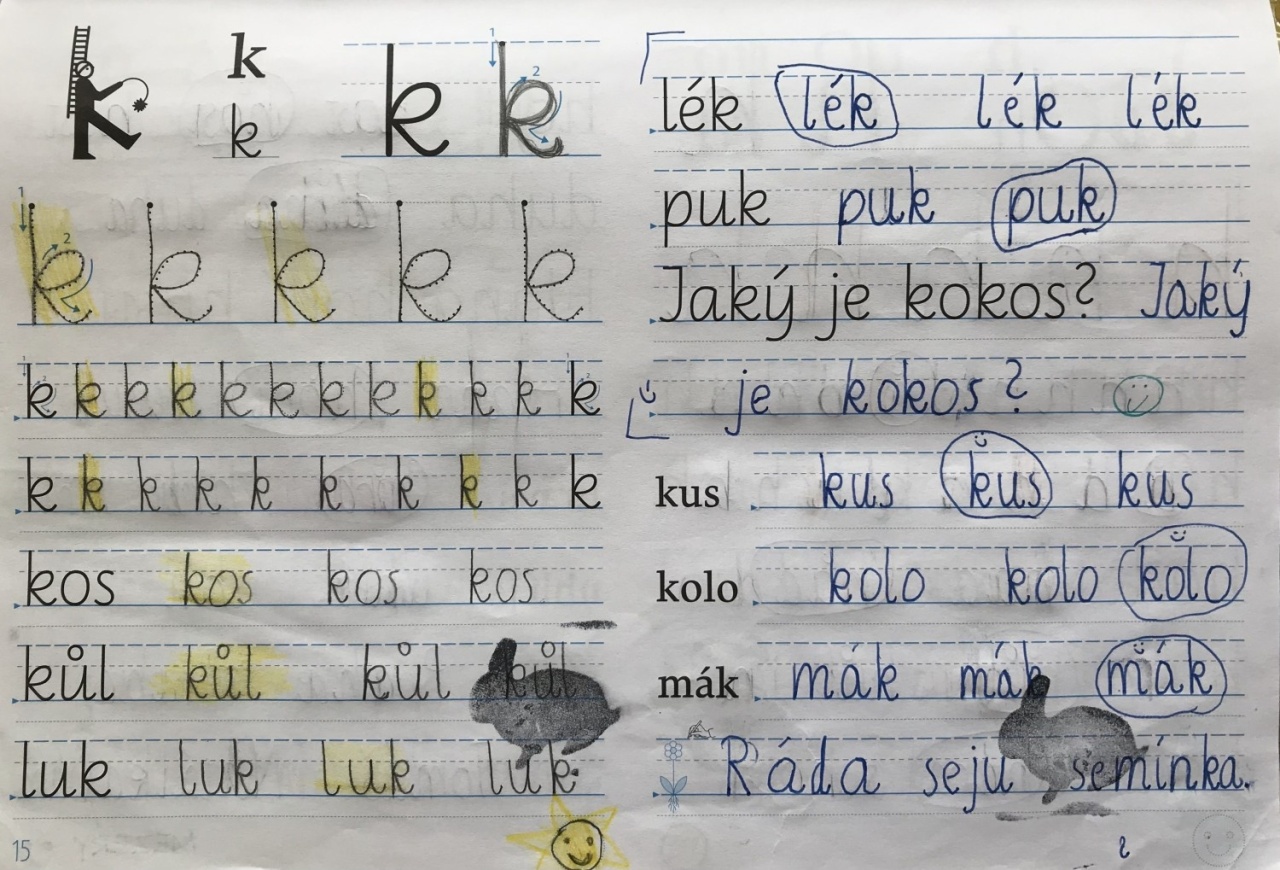 k
k k
k
1 2
1 2
k k k k k
k k k k k k k k k k k k
k k k k k k k k k k
kos kos kos kos
kůl kůl kůl kůl
luk luk luk luk
15
lék lék lék lék
puk puk puk
Jaký je kokos? Jaký
je kokos?
kus kus kus kus
kolo kolo kolo kolo
mák mák mák mák
Ráda seju semínka.